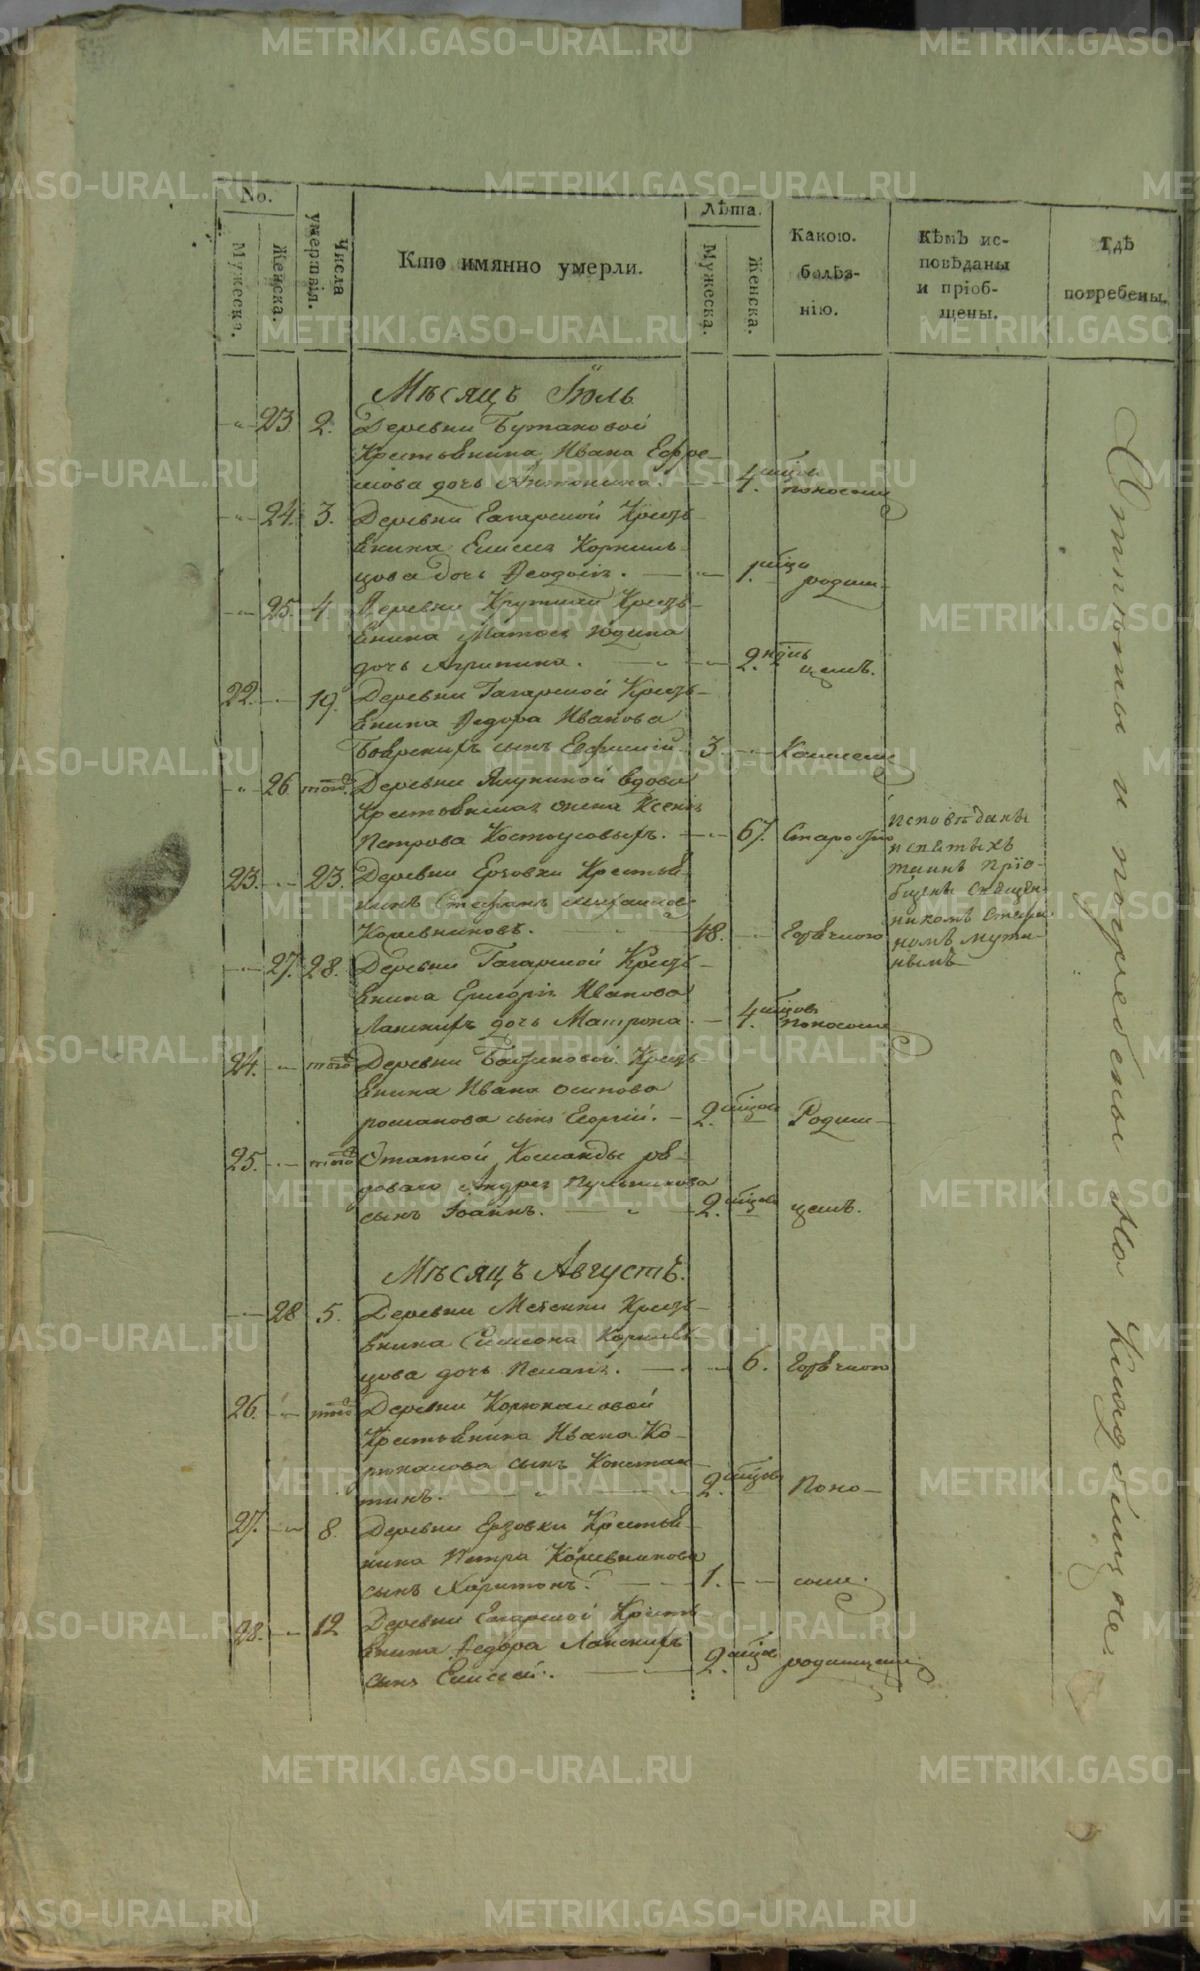 No.
Мужеска.
Женска.
Числа умертвія.
Кто имянно умерли.
Лѣта.
Мужеска.
Женска.
Какою. болѣз- нію.
Кѣмъ ис- повѣданы и пріоб- щены.
Гдѣ погребены.
Мѣсяцъ Іюль
23 2. Деревни Бутаковой
Крестьянина Ивана Ефре-
мова дочь Антонина. 4. мцовъ поносомъ
24. 3. Деревни Гагарской Кресть
янина Елисея Корниль
цова дочь Ѳеодосія. 1. мцъ родим-
25. 4. Деревни Крутихи Кресть-
янина Матѳея Юдина
дочь Агрипина. 2. ндль цемъ.
22. 19. Деревни Гагарской Кресть-
янина Ѳедора Иванова
Боярскихъ сынъ Евфимій 3. Кашлемъ
26 того Деревни Ялуниной вдова
Крестьянская жена Ксенія
Петрова Костоусовыхъ. 67. Старостію
Исповѣданы
и святыхъ
таинъ пріо-
бщены священ-
никомъ Стефа
номъ Мути-
нымъ
23. 23. Деревни Ерзовки Крестья
нинъ Стефанъ
Кожевниковъ. 48. Горячкою
27. 28. Деревни Гагарской Кресть-
янина Иванова
Ланскихъ дочь Матрона. 4. мцовъ поносомъ
24. того Деревни Кресть-
янина Ивана Осипова
романова сынъ Георгій. 2. мцовъ Родим-
25. того Этапной Команды ря-
доваго Андрея Пульникова
сынъ Іоаннъ. 2. мцовъ цемъ.
Мѣсяцъ Августъ.
28 5. Деревни Мезенки Кресть-
янина Симеона Корниль
цова дочь Пелагія. 6. Горячкою
26. того Деревни Корюкаловой
Крестьянина Ивана Ко-
рюкалова сынъ Констан-
тинъ. 2. мцовъ Поно-
27. 8. Деревни Ерзовки Крестья-
нина Петра Кожевникова
сынъ Харитонъ. 1. сомъ.
28. 12 Деревни Гагарской Кресть-
янина Ѳедора Ланскихъ
сынъ Елисей. 2. мцовъ родимцемъ.
Отпѣты и погребены на Кладбищѣ.
METRIKI.GASO-URAL.RU